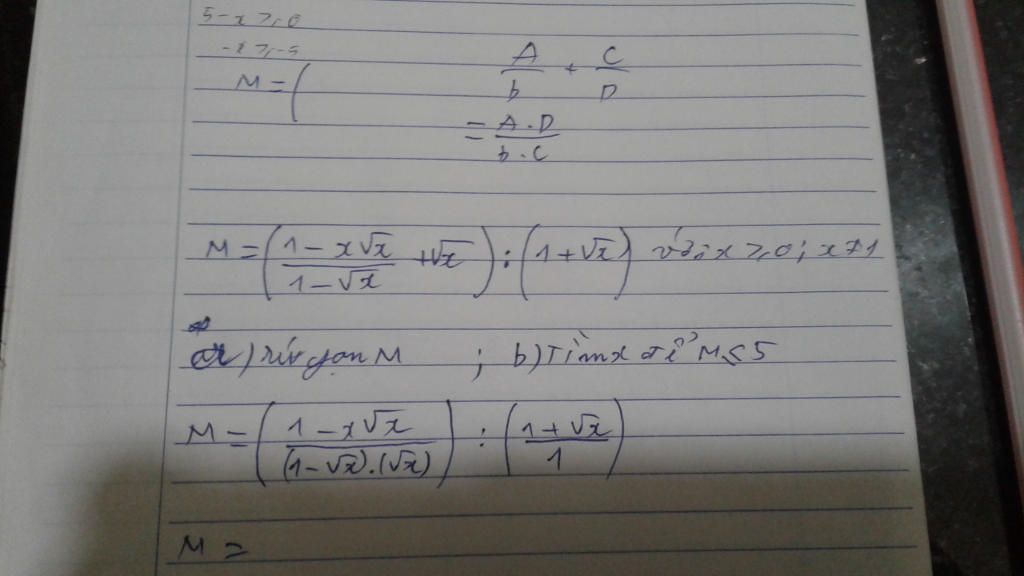 5-x ⩾ 0
-x ⩾ -5
M = (
A/b + C/D
= A.D/b.C
M = ((1-x√x)/(1-√x) + √x) : (1+√x) với x ⩾ 0; x ≠ 1
a) rút gọn M ; b) Tìm x để M ⩽ 5
M = ((1-x√x)/((1-√x).(√x))) : ((1+√x)/1)
M =